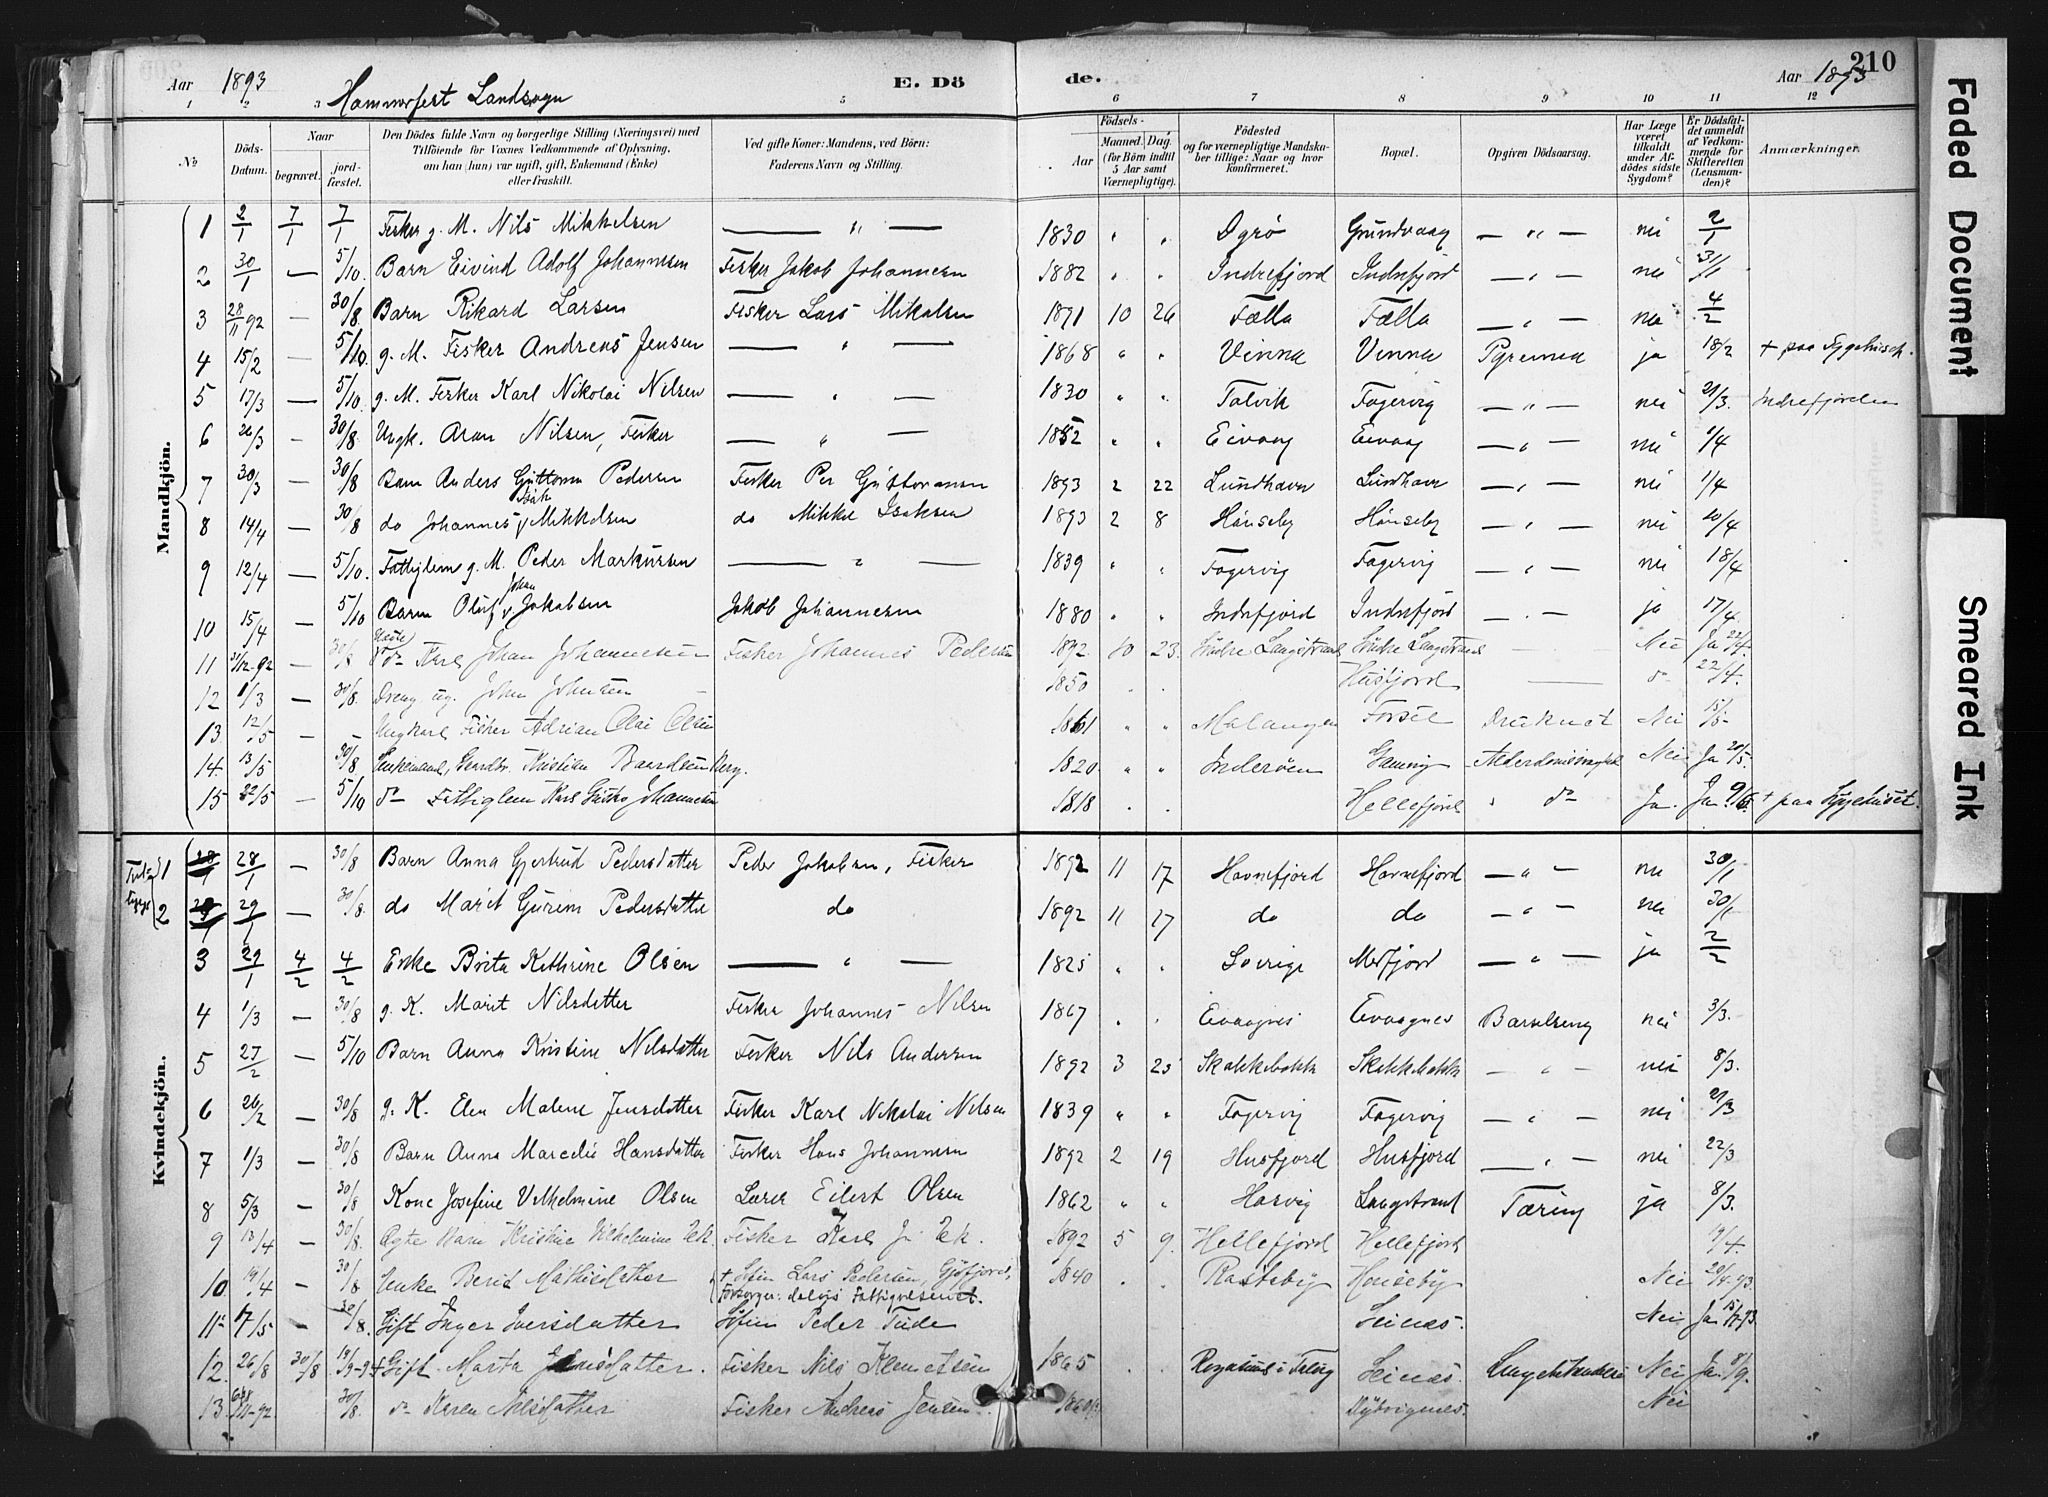 Aar 1893 Hammerfest Landsogn E. Dö de. Aar 1893 210
1 2 3 5 6 7 8 9 10 11 12
No
Döds-Datum.
Naar
begravet.
jord-fæstet.
Den Dödes fulde Navn og borgerlige Stilling (Næringsvei) med
Tilföiende for Voxnes Vedkommende af Oplysning,
om han (hun) var ugift, gift, Enkemand (Enke)
eller fraskilt.
Ved gifte Koner: Mandens, ved Börn:
Faderens Navn og Stilling.
Födsels-
Aar
Maaned. Dag.
(for Börn indtil
5 Aar samt
Værnepligtige).
Födested
og for værnepligtige Mandska-
ber tillige: Naar og hvor
konfirmeret.
Bopæl.
Opgiven Dödsaarsag.
Har Læge
været
tilkaldt
under Af-
dödes sidste
Sygdom?
Er Dödsfal-
det anmeldt
af Vedkom-
mende for
Skifteretten
(Lensman-
den)?
Anmærkninger.
Mandkjön.
1 2/1 7/1 7/1 Fisker g. M. Nils Mikkelsen — " — 1830 " " Grundvaag — " — nei 2/1
2 30/1 — 5/10. Barn Eivind Adolf Johannesen Fisker Jakob Johannesen 1882 " " Indrefjord Indrefjord — " — nei 31/1
3 28/11 92 — 30/8 Barn Rikard Larsen Fisker Lars Mikalsen 1891 10 26 Fælla Fælla — " — nei 4/2
4 15/2 — 5/10. g. M. Fisker Andreas Jensen — " — 1868 " " Vinna Vinna ja 18/2 + paa Sygehuset.
5 17/3 — 5/10. g. M. Fisker Karl Nikolai Nilsen — " — 1830 " " Talvik Fagervig — " — nei 21/3. Indrefjorden
6 26/3 — 30/8. Ungk. Aron Nilsen, Fisker — " — " " Eivaag Eivaag — " — nei 1/4
7 30/3 — 30/8 Barn Anders Guttorm Pedersen Fisker Per Guttormsen 1893 2 22 Lundhavn Lundhavn — " — nei 1/4
8 14/4 — 30/8 do Johannes Isak Mikkelsen do Mikkel Isaksen 1893 2 8 Hønseby Hønseby — " — nei 10/4
9 12/4 — 5/10. Fattiglem g. M. Peder Markusen — " — 1839 " " Fagervig Fagervig — " — nei 18/4
10 15/4 — 5/10 Barn Oluf Johan Jakobsen Jakob Johannesen 1880 " " Indrefjord Indrefjord — . — ja 17/4.
11 31/12-92 — 30/8 do Karl Johan Johannesen Fisker Johannes Pedersen 1892 10 23. Søndre Langstrand Søndre Langstrand Nei Ja 22/4.
12 1/3 — 30/8. Dreng ug. John Johnsen 1850 . . Husfjord — do 22/4.
13 12/5 — — Ungkarl Fisker Adrian Olai Olsen 1861 " " Malangen Forsøl Druknet Nei 15/5
14. 13/5 — 30/8. Enkemand, Gaardbr. Kristian Baardsen Berg. 1820. " " Inderøen Alderdomssvaghed Nei Ja 20/5.
15 22/5 — 5/10 do Fattiglem Johannesen 1818 . . Hellefjord " do Ja. Ja 9/6. + paa Sygehuset.
Kvindekjön.
1 28/1 — 30/8 Barn Anna Gjertrud Pedersdatter Peder Jakobsen, Fisker 1892 11 17 Havnefjord Havnefjord — " — nei 30/1
2 29/1 — 30/8. do Marit Gurine Pedersdatter do 1892 11 17 do do — " — nei 30/1
3 29/1 4/2 4/2 Enke Brita Kathrine Olsen — " — 1825 " " Sverige Mefjord — " — ja 2/2
4 1/3 — 30/8 g. K. Marit Nilsdatter Fisker Johannes Nilsen 1867 " " Eivaagnes Eivaagnes Barselseng nei 3/3.
5 27/2 — 5/10 Barn Anna Kristine Nilsdatter Fisker Nils Andersen 1892 3 25 — " — nei 8/3.
6 26/2 — 30/8 g. K. Elen Malene Jensdatter Fisker Karl Nikolai Nilsen 1839 " " Fagervig Fagervig — " — nei 21/3
7 1/3 — 30/8 Barn Anna Marcelie Hansdatter Fisker Hans Johannesen 1892 2 19 Husfjord Husfjord — " — nei 22/3
8 5/3 — 30/8 Kone Josefine Vilhelmine Olsen Lærer Eilert Olsen 1862 " " Hasvig Langstrand Tæring ja 8/3.
9 13/4 — 30/8. Ægte Barn Kristine Vilhelmine Eek. Fisker Karl J. Eek. 1892 5 9. Hellefjord Hellefjord 19/4.
10 19/4 — 30/8 Enke Berit Mathisdatter + Søfin Lars Pedersen, Gjøfjord, 1840 . . Hønseby Nei 20/4-93.
Forsørger: delvis Fattigvæsenet.
11 17/5 — 30/8. Gift Inger Iversdatter Søfin Peder Tude Seines. Nei Ja
12. 26/8 30/8 19/9-94 Gift Marta Jensdatter. Fisker Nils Klemetsen 1865 . . Seines. Nei Ja 8/9.
13. — 30/8. do Karen Nilsdatter Fisker Andreas Jensen. Dybvignes. Nei
Faded Document
Smeared Ink